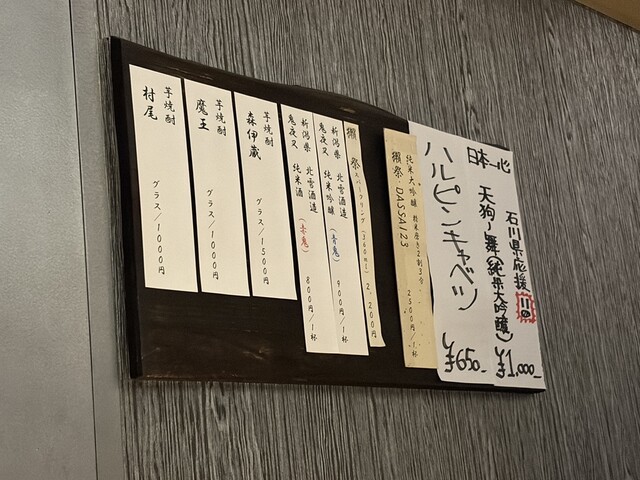 石川県応援
日本一心
天狗ノ舞(純米大吟醸)
¥1,000-
ハルピンキャベツ
¥650-
純米大吟醸 精米歩合2割3分
獺祭 DASSAI 23
2500円/1杯
獺祭 スパークリング(360ml) 2,200円
新潟県 北雪酒造
鬼夜叉 純米吟醸(青鬼)
900円/1杯
新潟県 北雪酒造
鬼夜叉 純米酒(赤鬼)
800円/1杯
芋焼酎
森伊蔵
グラス/1500円
芋焼酎
魔王
グラス/1000円
芋焼酎
村尾
グラス/1000円